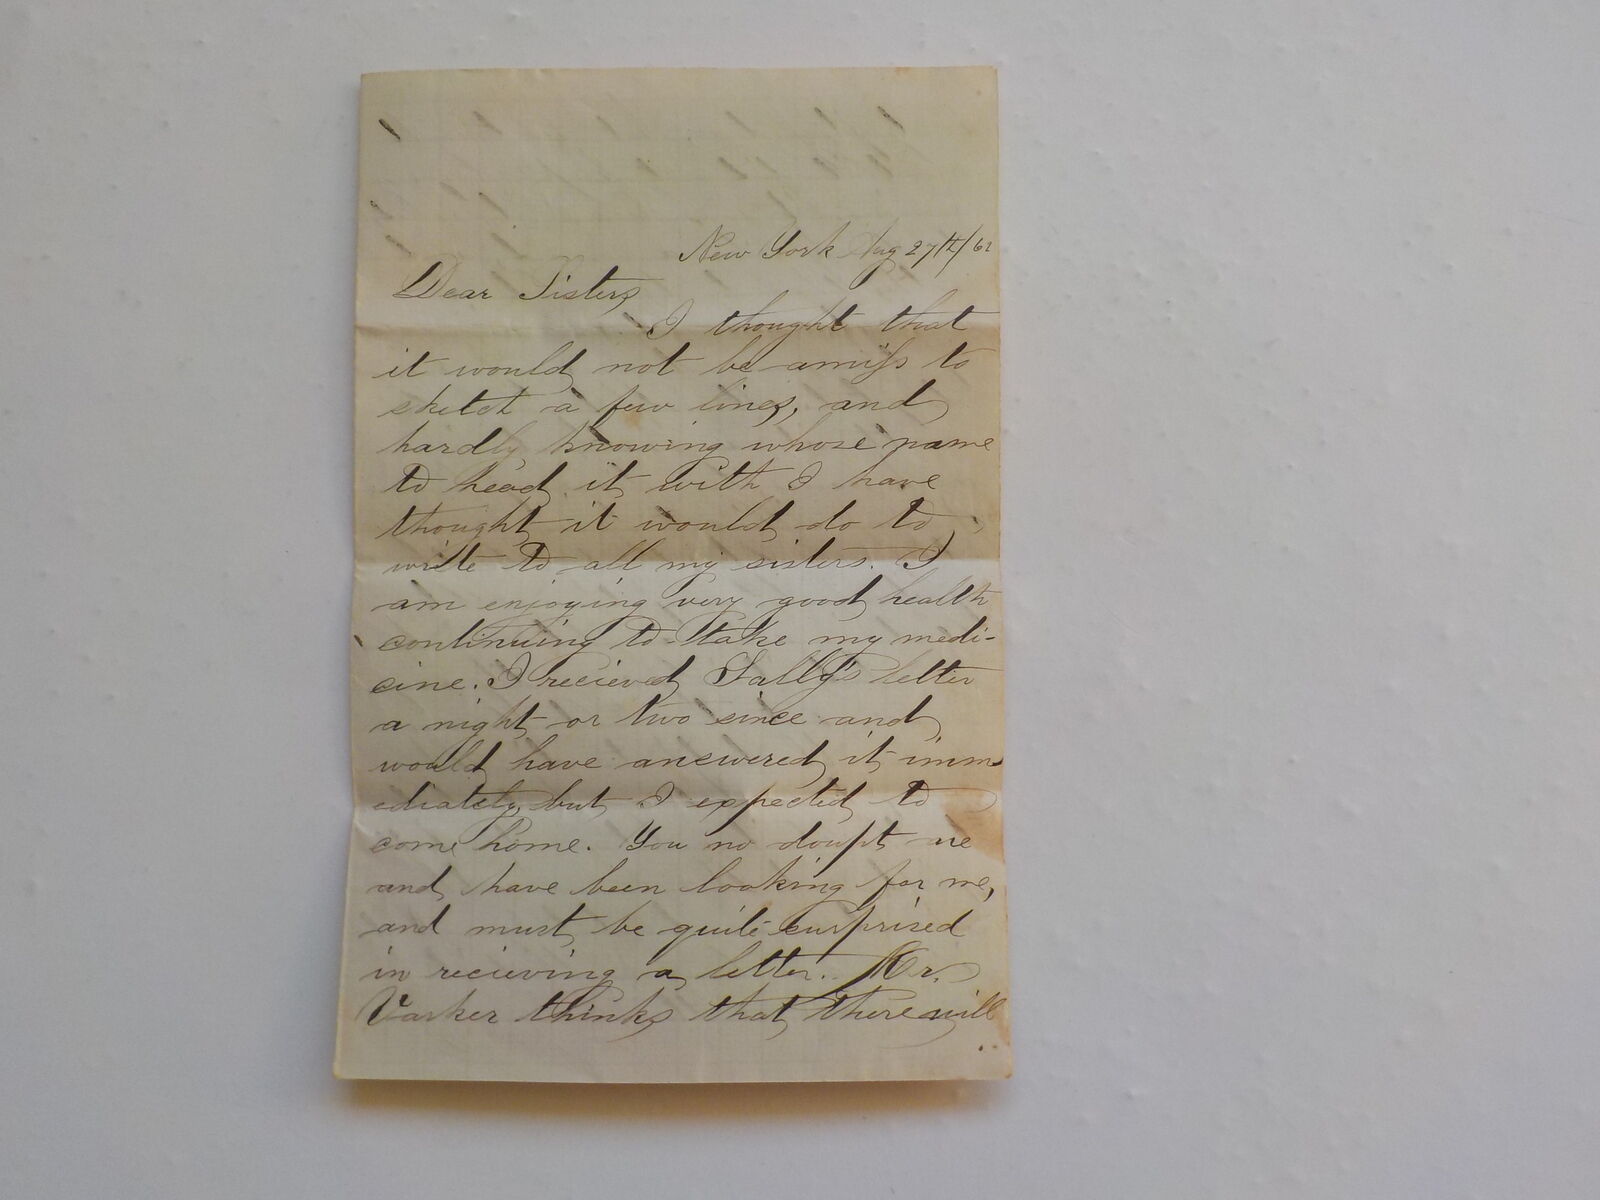 New York Aug 27th/62
Dear Sisters
I thought that
it would not be amiss to
sketch a few lines, and
hardly knowing whose name
to head it with I have
thought it would do to
write to all my sisters. I
am enjoying very good health
continuing to take my medi-
cine. I recieved Sally's letter
a night or two since and
would have answered it imm
ediately but I expected to
come home. You no doupt are
and have been looking for me,
and must be quite surprised
in recieving a letter. Mr.
Varker thinks that there will